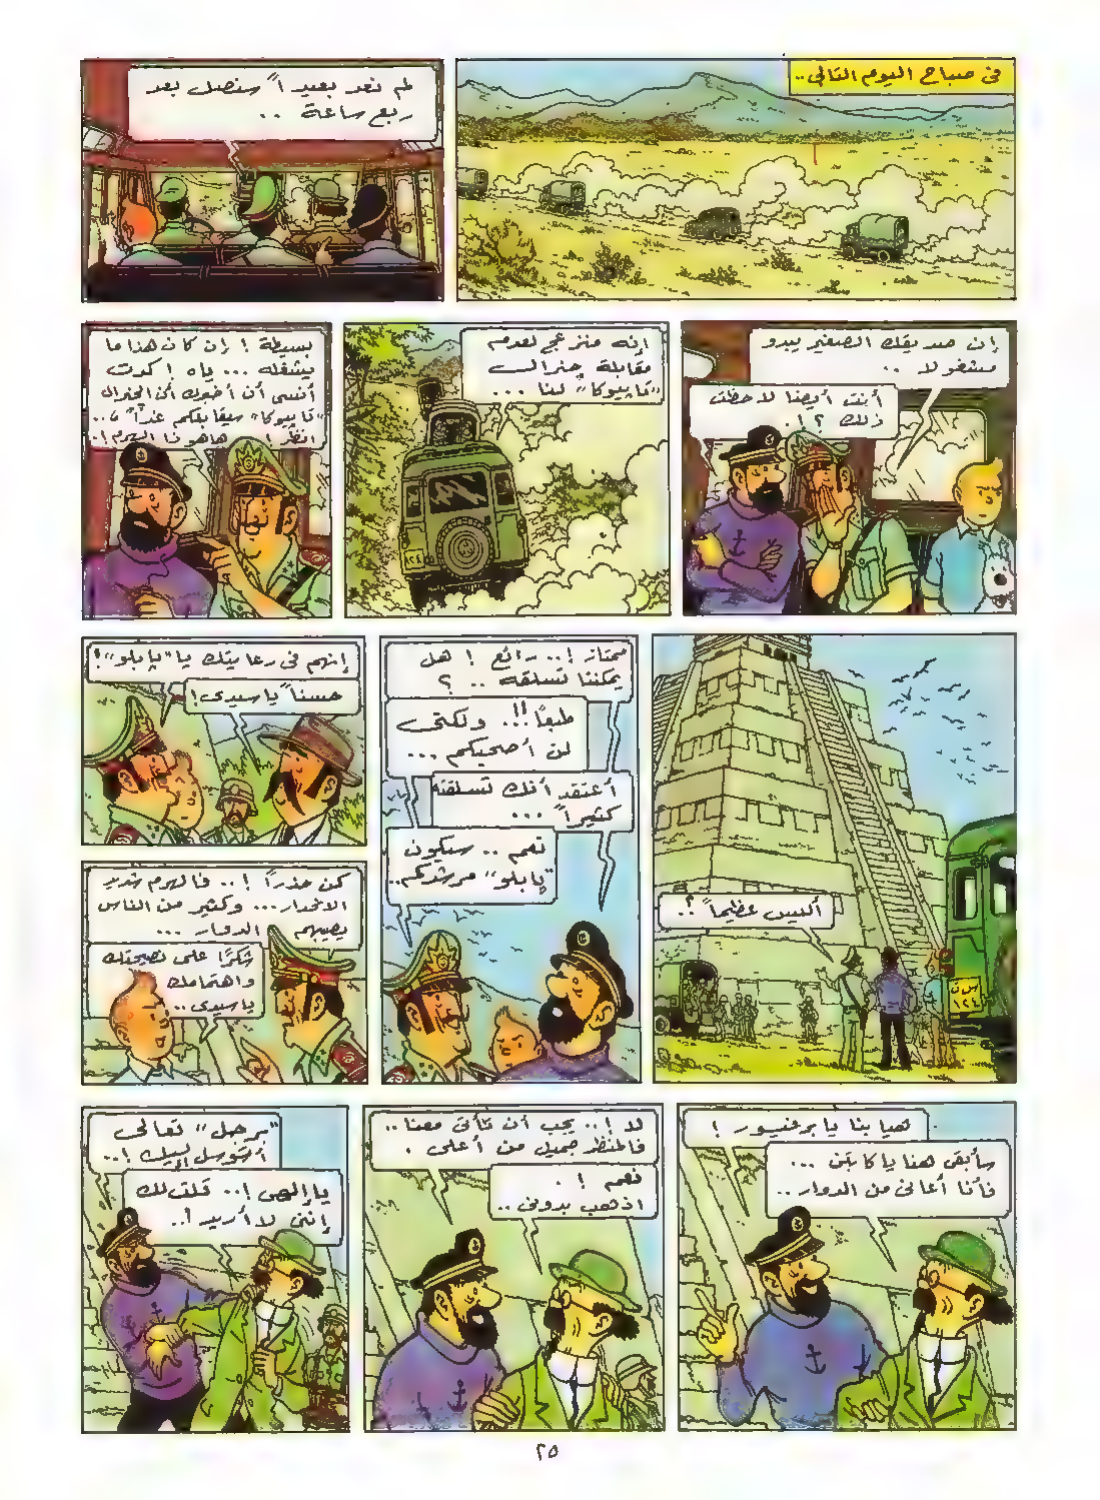 في صباح اليوم التالي..
لم نعد بعيداً سنصل بعد
ربع ساعة ..
إن صديقك الصغير يبدو
مشغولا ..
أنت أيضا لاحظت
ذلك ؟!.
إنه منزعج لعدم
مقابلة جنرال
"تابيوكا" لنا ...
بسيطة ! إن كان هذا ما
يشغله ... ياه ! كدت
أنسى أن أخبرك أن الجنرال
"تابيوكا" سيقابلكم غداً ..
انظر ! هاهو ذا الهرم !.
أليس عظيماً ؟.
ممتاز !.. رائع ! هل
يمكننا تسلقه .. ؟
طبعاً !!. ولكنى
لن أصحبكم ...
أعتقد أنك تسلقته
كثيراً ...
نعم .. سيكون
"پابلو" مرشدكم..
إنهم في رعايتك يا "پابلو" !
حسناً يا سيدى !
كن حذراً !.. فالهرم شديد
الانحدار ... وكثير من الناس
يصيبهم الدوار ...
شكرًا على نصيحتك
واهتمامك
يا سيدى ..
هيا بنا يا برفسيور !
سأبقى هنا يا كابتن ...
فأنا أعانى من الدوار ..
لا !.. يجب أن تأتى معنا ..
فالمنظر جميل من أعلى .
نعم ! .
اذهب بدونى ..
"برجل" تعالى
أتوسل إليك !..
يا إلهى !.. قلت لك
إننى لا أريد !..
س ن
١٢٤
٢٥